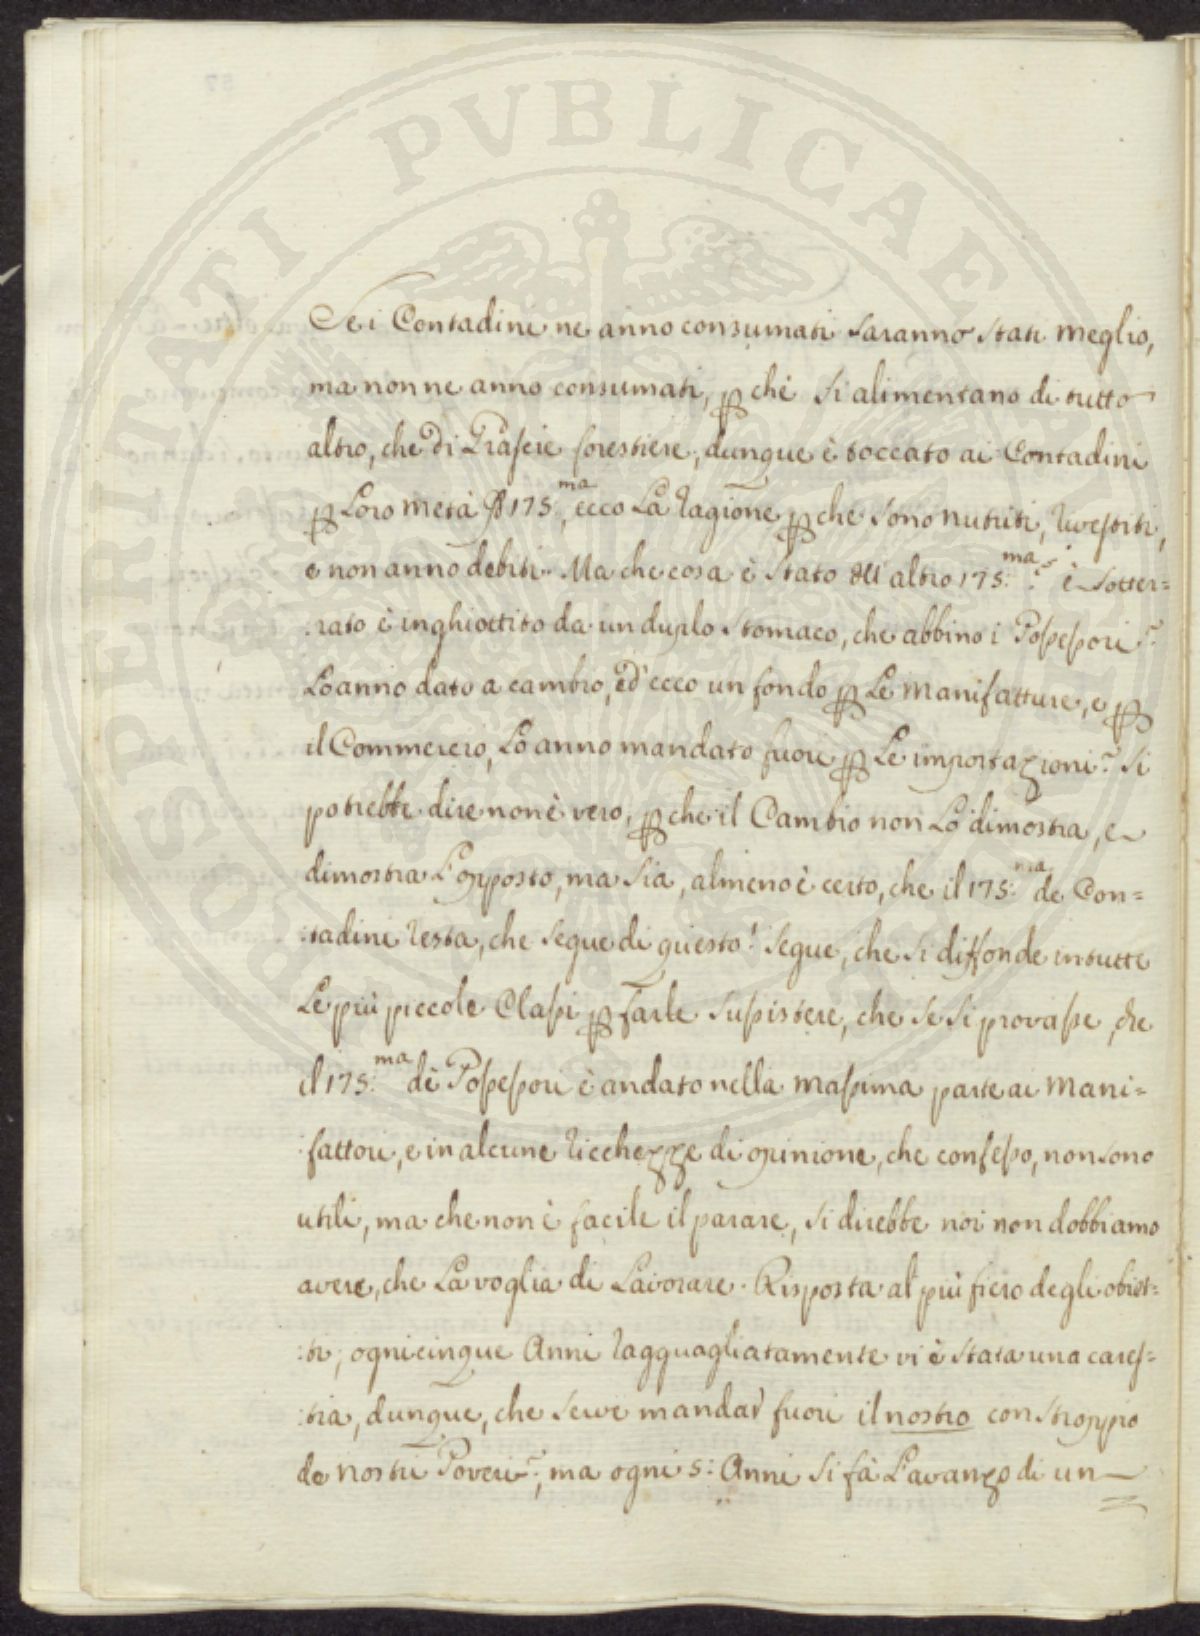 PROSPERITATI PVBLICAE
Se i Contadini ne anno consumati saranno stati meglio,
ma non ne anno consumati, p che si alimentano di tutto
altro, che di Grascie forestiere, dunque è toccato ai Contadini
p Loro metà 175.ma, ecco La ragione p che sono nutriti, rivestiti,
e non anno debiti. Ma che cosa è stato dell altro 175.ma? è Sotter=
:rato è inghiottito da un duplo stomaco, che abbino i Possessori?
Lo anno dato a cambio, ed' ecco un fondo p Le manifatture, e p
il Commercio, Lo anno mandato fuori p Le importazioni? Si
potrebbe dire non è vero, p che il Cambio non Lo dimostra, e
dimostra L'opposto, ma sia, almeno è certo, che il 175.ma de Con=
:tadini resta, che segue di questo? segue, che si diffonde in tutte
Le più piccole Classi p farle sussistere, che se si provasse, che
il 175.ma dè Possessori è andato nella massima parte ai Mani=
:fattori, e in alcune ricchezze di opinione, che confesso, non sono
utili, ma che non è facile il parare, si direbbe noi non dobbiamo
avere, che La voglia di Lavorare. Risposta al più fiero degli obiet=
:ti; ogni cinque Anni ragguagliatamente vi è stata una cares=
:tia, dunque, che serve mandar fuori il nostro con stroppio
de nostri Poveri?; ma ogni 5: Anni si fà L'avanzo di un